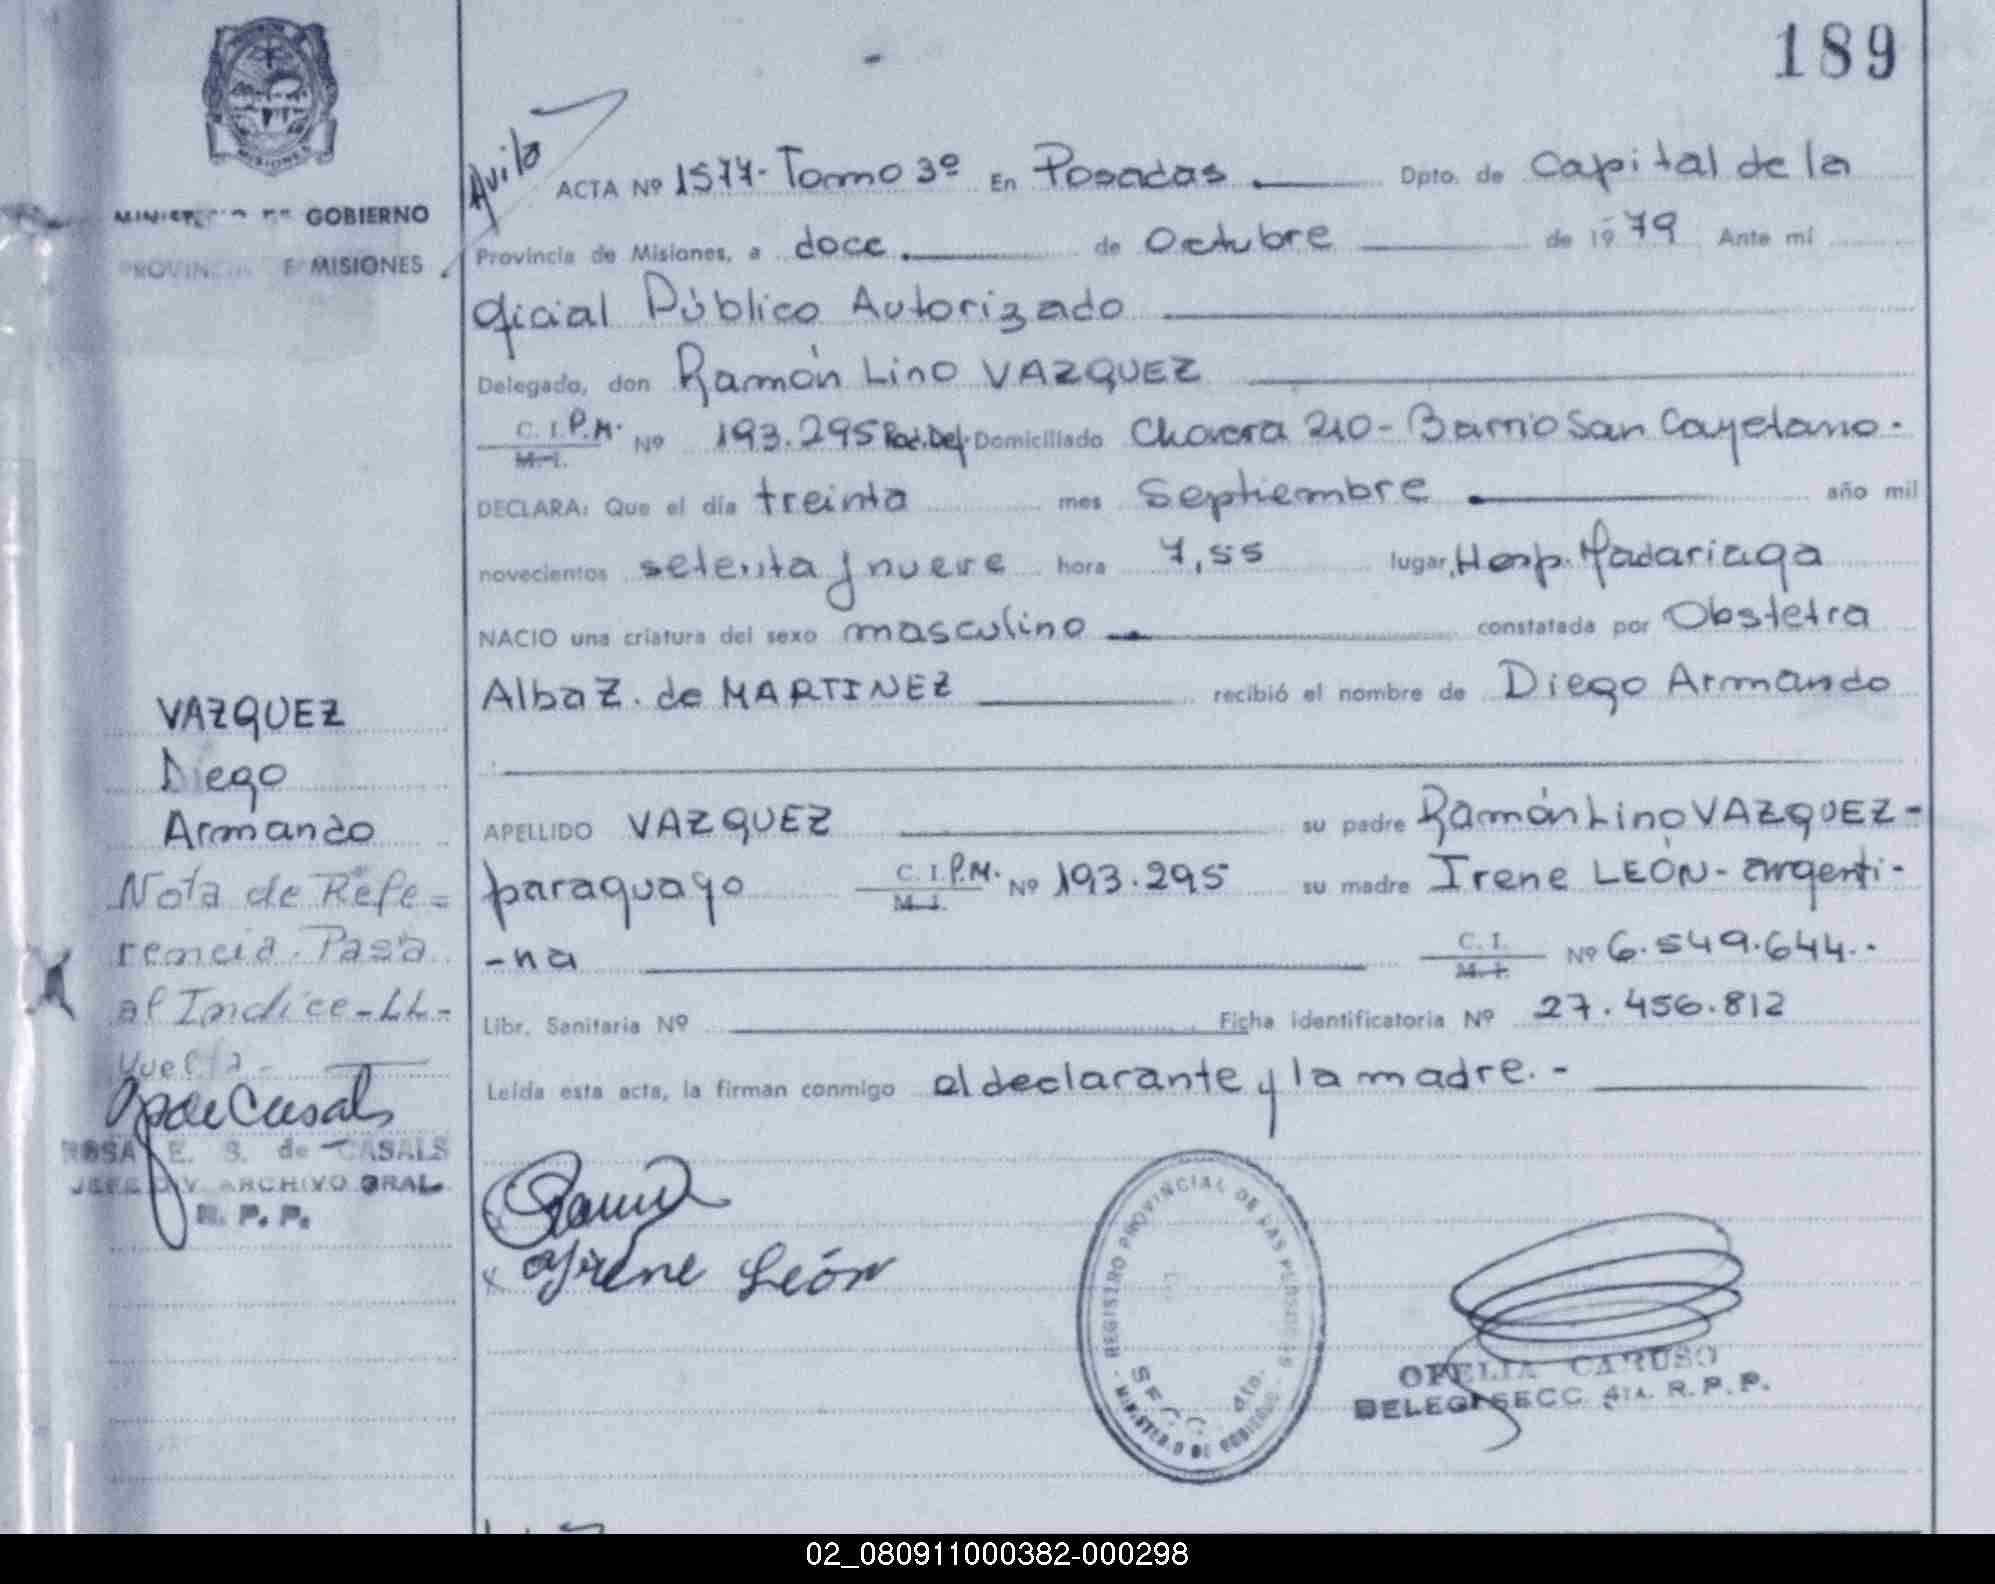 189
MISIONES
MINISTERIO DE GOBIERNO
PROVINCIA DE MISIONES
Avila
ACTA Nº 1577- Tomo 3º En Posadas Dpto. de Capital de la
Provincia de Misiones, a doce de Octubre de 1979 Ante mí
Oficial Público Autorizado
Delegado, don Ramón Lino VAZQUEZ
C. I. P.M. Nº 193.295 Pol. Def. Domiciliado Chacra 210 - Barrio San Cayetano.
M. I.
DECLARA: Que el día treinta mes Septiembre año mil
novecientos setenta y nueve hora 7,55 lugar, Hosp. Madariaga
NACIO una criatura del sexo masculino constatada por Obstetra
Alba Z. de MARTINEZ recibió el nombre de Diego Armando
APELLIDO VAZQUEZ su padre Ramón Lino VAZQUEZ-
paraguayo C. I. P.M. Nº 193.295 su madre Irene LEÓN - argenti-
M. I.
-na C. I. Nº 6.549.644.-
M. I.
Libr. Sanitaria Nº Ficha identificatoria Nº 27.456.812
Leída esta acta, la firman conmigo el declarante y la madre.-
VAZQUEZ
Diego
Armando
Nota de Refe=
rencia. Pasa
al Indice-LL-
Vuelta-
ROSA E. S. de CASALS
JEFE DIV. ARCHIVO GRAL.
R. P. P.
Irene León
REGISTRO PROVINCIAL DE LAS PERSONAS
SECC. 4ta.
- MINISTERIO DE GOBIERNO -
OFELIA CARUSO
DELEG. SECC. 4TA. R. P. P.
02_080911000382-000298